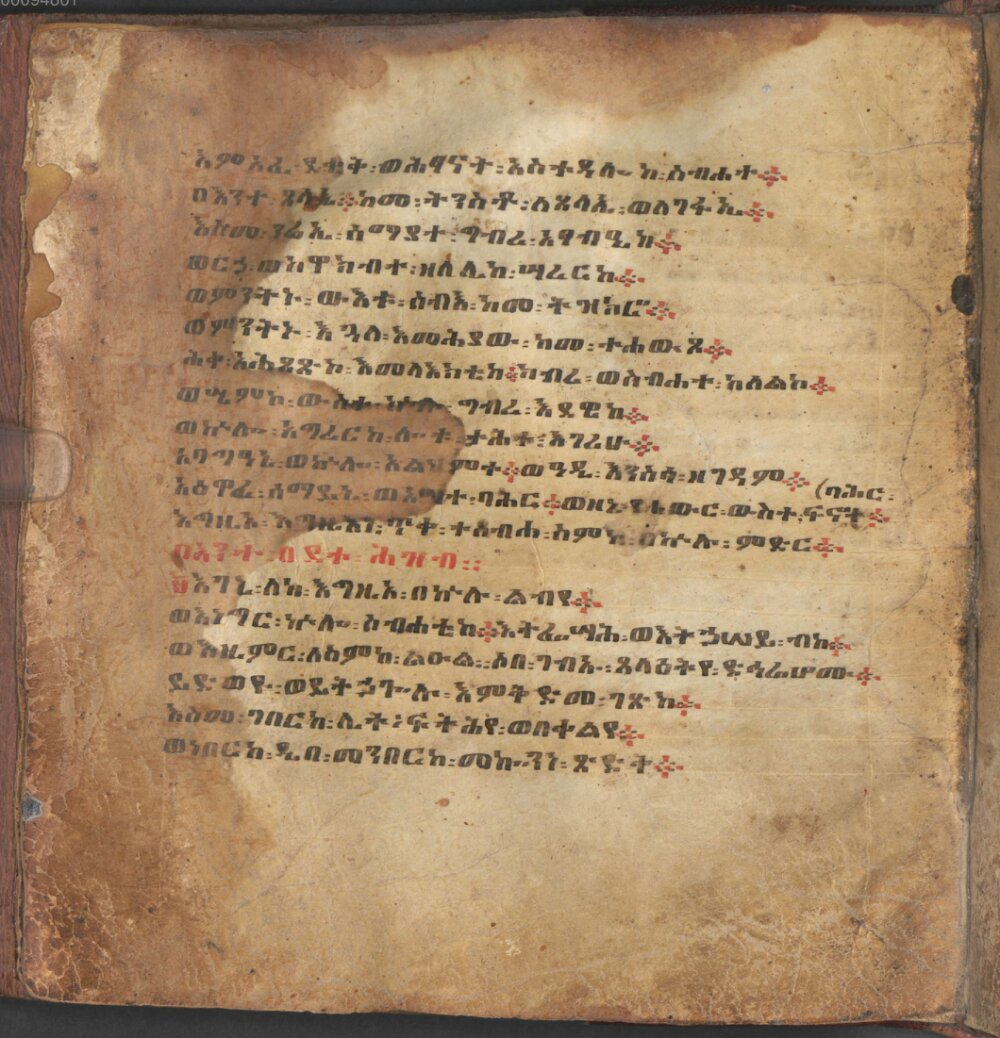 00094801
እምአፈ ደቂቅ፡ወሕፃናት፡አስተዳሎ ከ፡ስብሐተ፨
በእንተ፡ጸላኢ፨ከመ፡ትንስቶ፡ለጸላኢ፡ወለገፋኢ፨
እስመ፡ንሬኢ፡ሰማያተ፡ግብረ፡አፃብዒከ፨
ወርኃ፡ወከዋክብተ፡ዘለሊከ፡ሣረርከ፨
ወምንትኑ፡ውእቱ፡ሰብእ፡ከመ፡ትዝክሮ፨
ወምንትኑ፡እጓለ፡እመሕያው፡ከመ፡ተሐውጾ፨
ሕቀ፡አሕጸጽኮ፡እመላእክቲከ፨ክብረ፡ወስብሐተ፡ከለልኮ፨
ወሢምኮ፡ውስተ፡ኵሉ፡ግብረ፡እደዊከ፨
ወኵሎ፡አግረርከ፡ሎቱ፡ታሕተ፡እገሪሁ፨
አባግዓኒ፡ወኵሎ፡አልህምተ፨ወዓዲ፡እንስሳ፡ዘገዳም፨
አዕዋፈ፡ሰማይኒ፡ወዓሣተ፡ባሕር፨ወዘኒ፡የሐውር፡ውስተ፡ፍናተ፨
(ባሕር፡
እግዚኦ፡እግዚእነ፡ጥቀ፡ተሰብሐ፡ስምከ፡በኵሉ፡ምድር፨
በእንተ፡ዐደተ፡ሕዝብ፡፡
፱እገኒ፡ለከ፡እግዚኦ፡በኵሉ፡ልብየ፨
ወእነግር፡ኵሎ፡ስብሐቲከ፨እትፌሣሕ፡ወእትኃሠይ፡ብከ፨
ወእዜምር፡ለስምከ፡ልዑል፡፡ሶበ፡ገብኡ፡ጸላዕትየ፡ድኅሬሆሙ፨
ይድወዩ፡ወይትኃጐሉ፡እምቅድመ፡ገጽከ፨
እስመ፡ገበርከ፡ሊተ፡ፍትሕየ፡ወበቀልየ፨
ወነበርከ፡ዲበ፡መንበርከ፡መኰንነ፡ጽድቅ፨